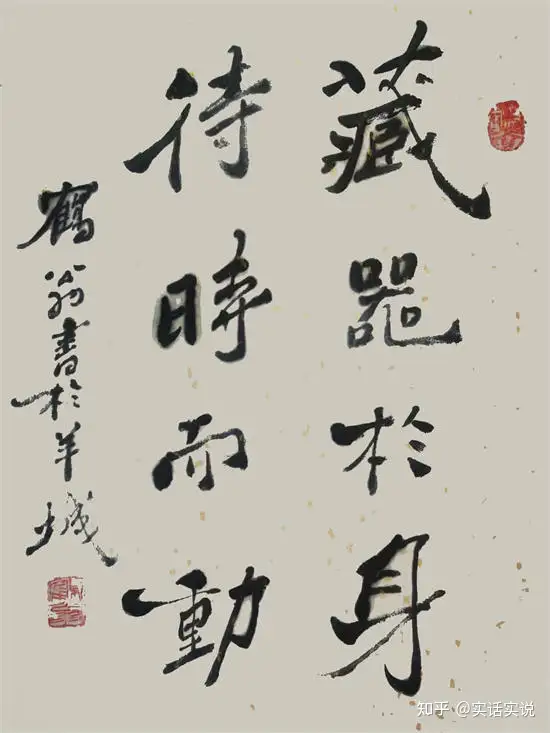 藏器於身
待時而動
鶴翁書於羊城
知乎 @实话实说